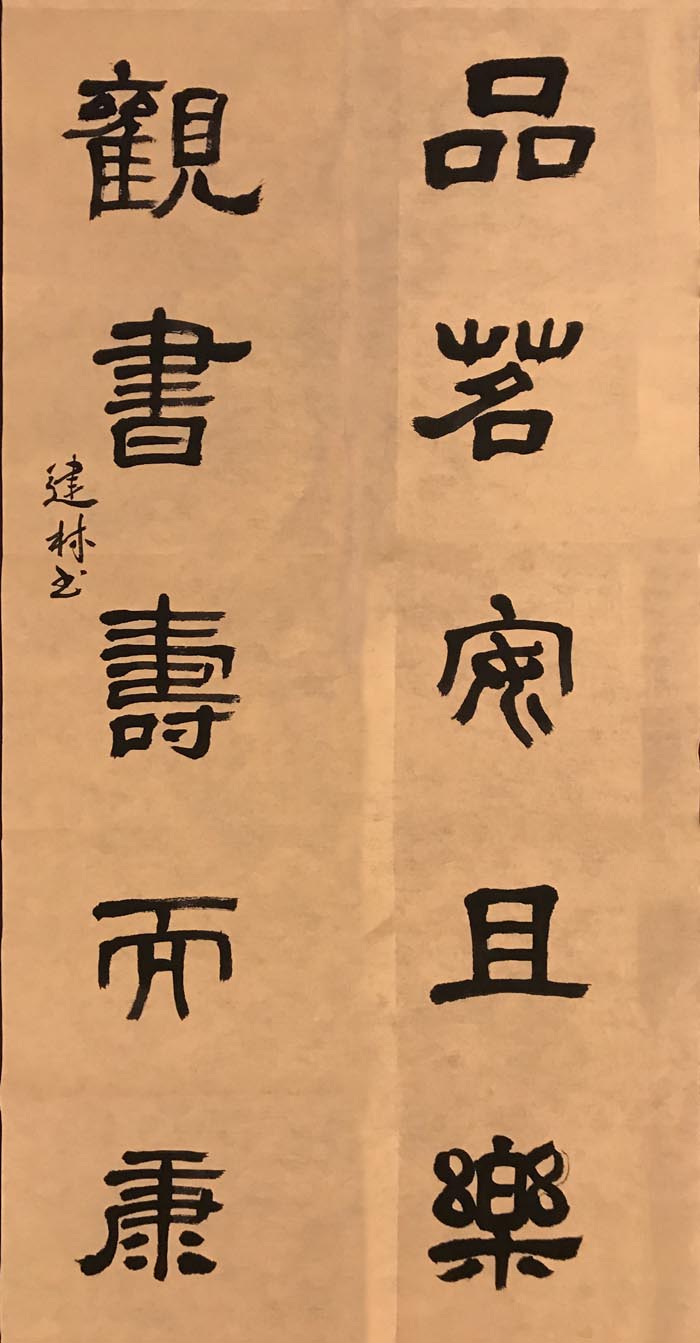 品茗安且樂
觀書壽而康
建林书